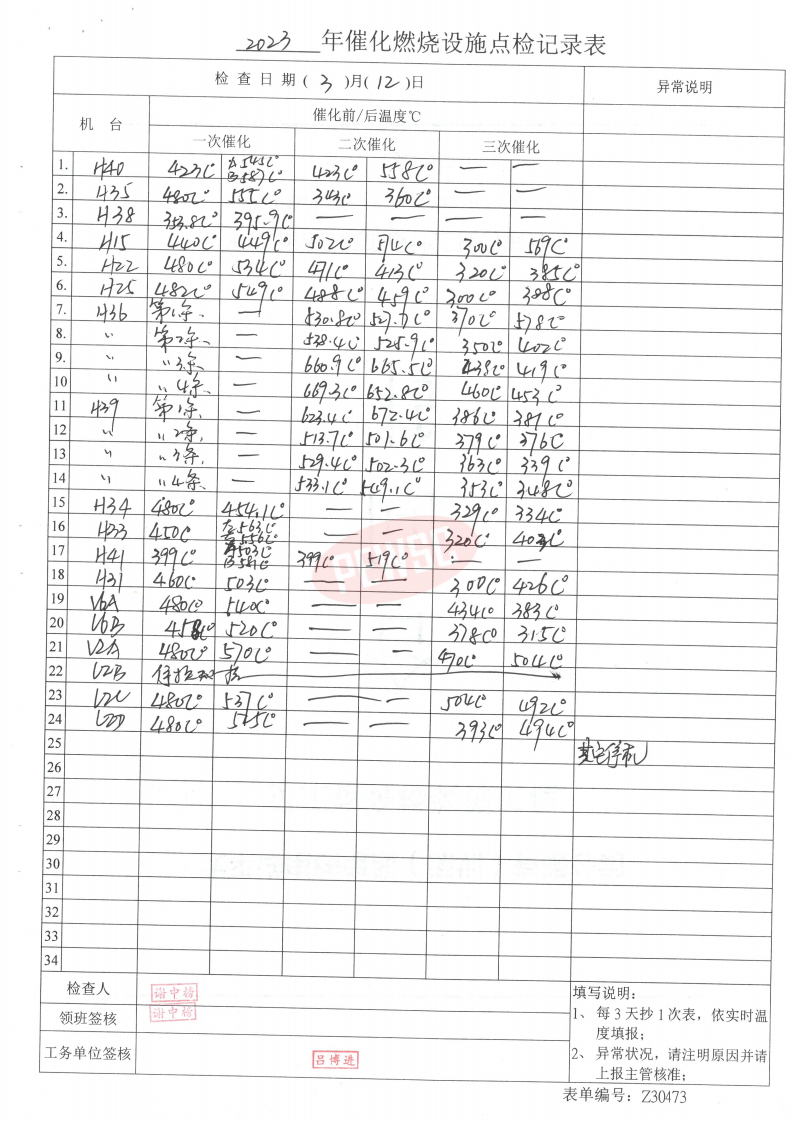 2023 年催化燃烧设施点检记录表
检查日期(3)月(12)日 异常说明
机台 催化前/后温度℃
一次催化 二次催化 三次催化
1. H40 423C° 左545C° 右587C° 423C° 558C° — —
2. H35 480C° 555C° 343C° 360C° — —
3. H38 353.8C° 395.9C° — — — —
4. H15 440C° 449C° 502C° 514C° 300C° 569C°
5. H22 480C° 534C° 471C° 413C° 320C° 385C°
6. H25 482C° 549C° 488C° 459C° 300C° 388C°
7. H36 第1条、 — 530.8C° 527.7C° 370C° 578C°
8. 〃 第2条、 — 538.4C° 525.9C° 350C° 402C°
9. 〃 〃3条、 — 660.9C° 665.5C° 438C° 419C°
10 〃 〃4条、 — 669.3C° 652.8C° 460C° 453C°
11 H39 第1条、 — 623.4C° 672.4C° 386C° 381C°
12 〃 〃2条、 — 513.7C° 501.6C° 379C° 376C°
13 〃 〃3条、 — 529.4C° 502.3C° 363C° 339C°
14 〃 〃4条、 — 533.1C° 549.1C° 353C° 348C°
15 H34 480C° 454.1C° — — 329C° 334C°
16 H23 450C° 左563C° 右556C° — — 320C° 403C°
17 H41 399C° 左503C° 右581C° 399C° 519C° — —
18 H31 460C° 503C° — — 300C° 426C°
19 V6A 480C° 540C° — — 434C° 383C°
20 V6B 458C° 520C° — — 378C° 315C°
21 V2A 480C° 570C° — — 470C° 504C°
22 V2B 停
23 V2C 480C° 537C° — — 504C° 492C°
24 V2D 480C° 525C° — — 393C° 494C°
25 其它停机
26
27
28
29
30
31
32
33
34
PCWSC
检查人 谢中裕
领班签核 谢中裕
工务单位签核 吕博进
填写说明:
1、每3天抄1次表，依实时温
度填报;
2、异常状况，请注明原因并请
上报主管核准;
表单编号: Z30473